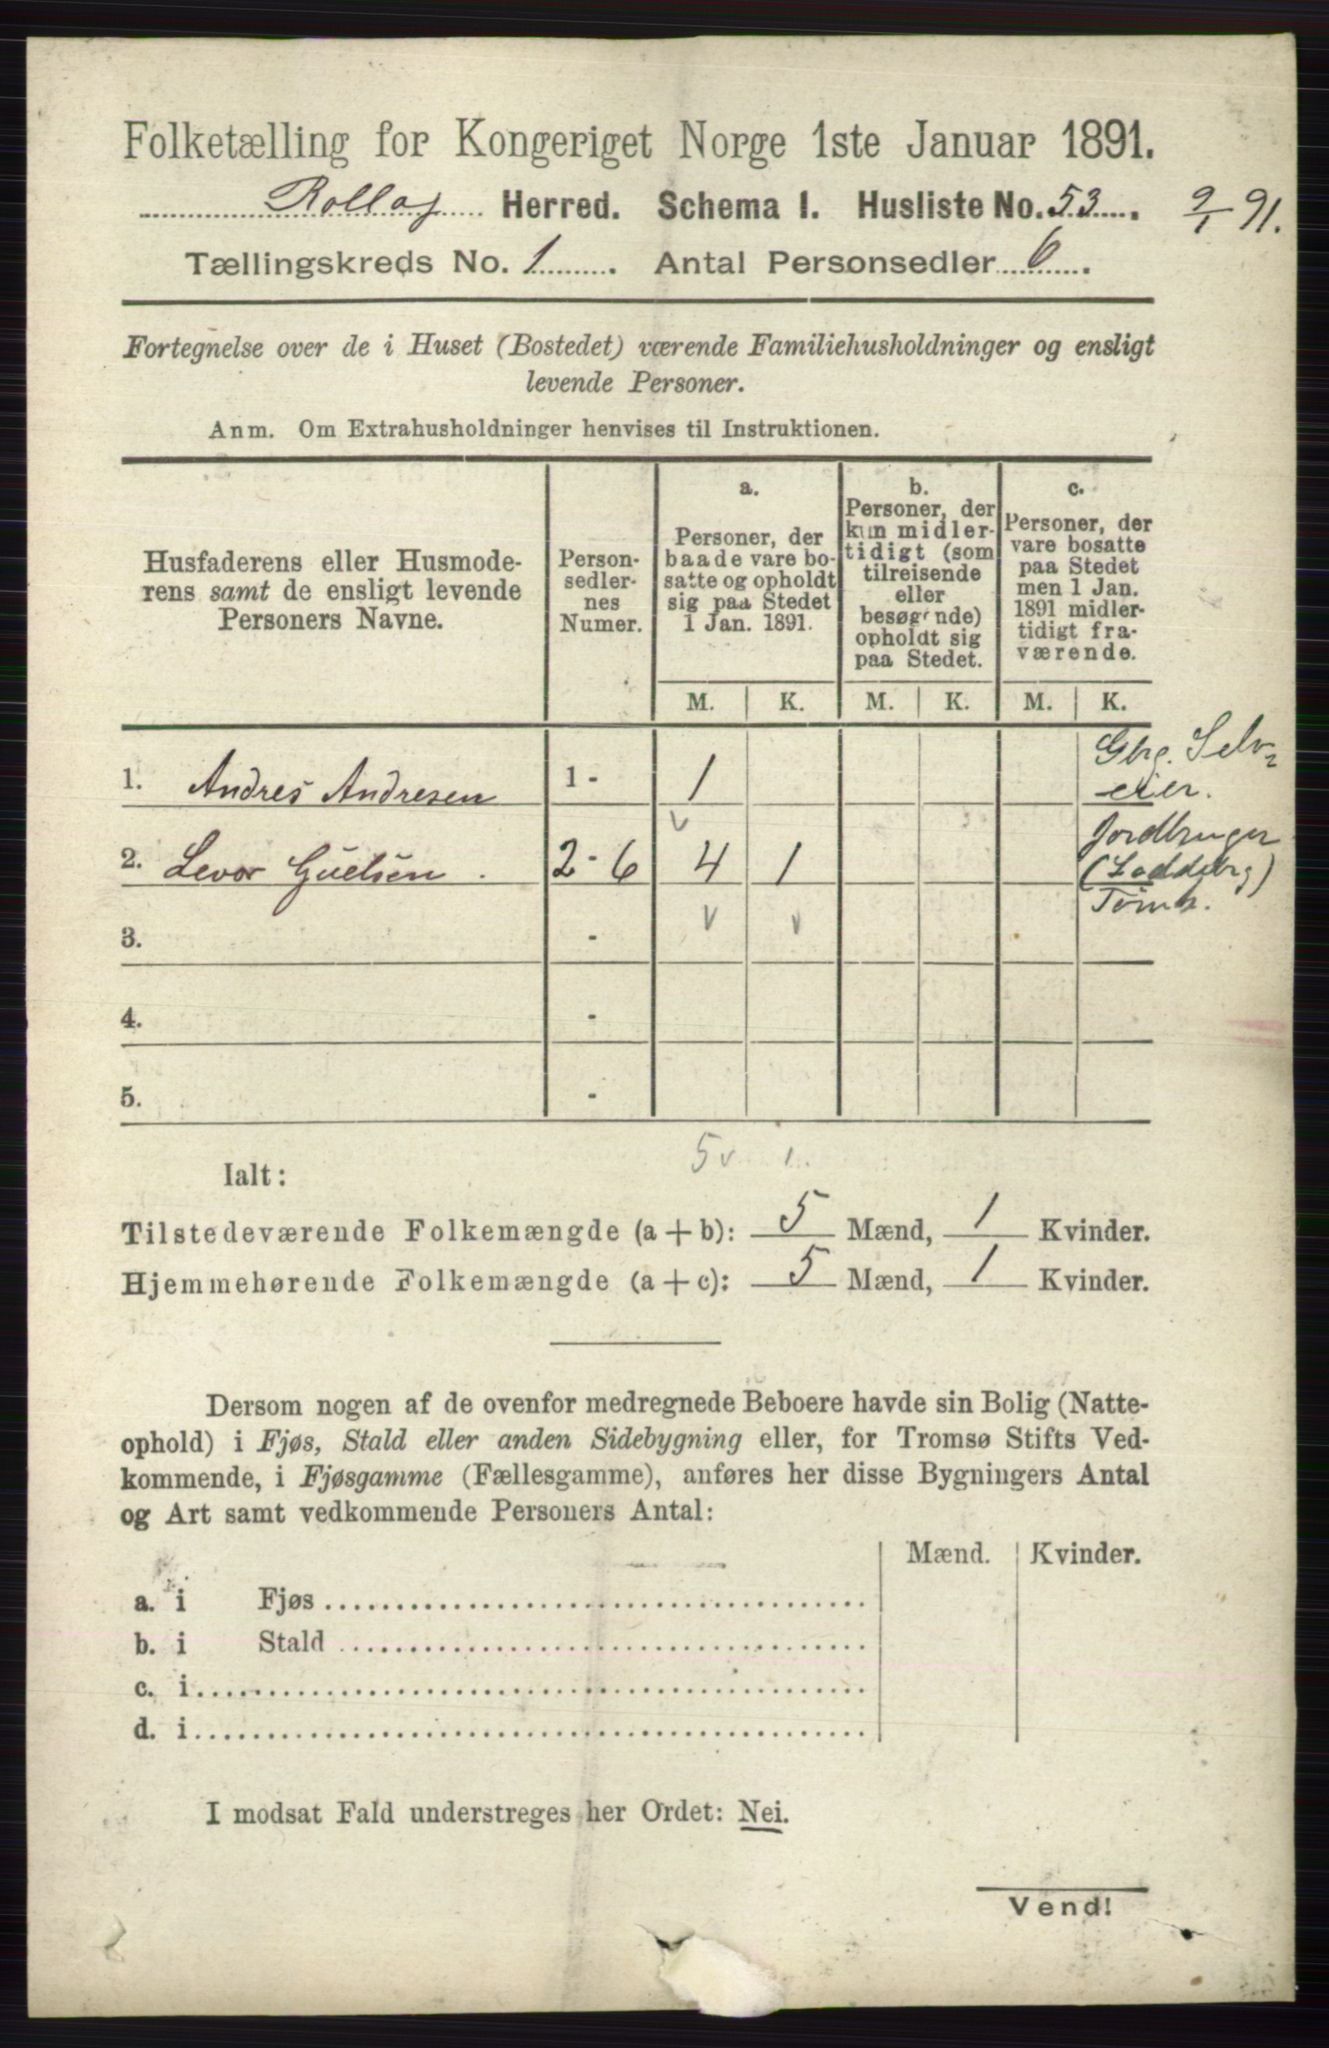 Folketælling for Kongeriget Norge 1ste Januar 1891.
Rollag Herred. Schema I. Husliste No. 53. 9/1 91.
Tællingskreds No. 1. Antal Personsedler 6.
Fortegnelse over de i Huset (Bostedet) værende Familiehusholdninger og ensligt
levende Personer.
Anm. Om Extrahusholdninger henvises til Instruktionen.
Husfaderens eller Husmode-
rens samt de ensligt levende
Personers Navne.
Person-
sedler-
nes
Numer.
a.
Personer, der
baade vare bo-
satte og opholdt
sig paa Stedet
1 Jan. 1891.
b.
Personer, der
kun midler-
tidigt (som
tilreisende
eller
besøgende)
opholdt sig
paa Stedet.
c.
Personer, der
vare bosatte
paa Stedet
men 1 Jan.
1891 midler-
tidigt fra-
værende.
M. K. M. K. M. K.
1. Andres Andresen 1 - 1 Gbr. Selv-
eier.
2. Levor Guelsen. 2 - 6 4 1 Jordbruger
Tømh.
3. -
4. -
5. -
5 1
Ialt:
Tilstedeværende Folkemængde (a + b): 5 Mænd, 1 Kvinder.
Hjemmehørende Folkemængde (a + c): 5 Mænd, 1 Kvinder.
Dersom nogen af de ovenfor medregnede Beboere havde sin Bolig (Natte-
ophold) i Fjøs, Stald eller anden Sidebygning eller, for Tromsø Stifts Ved-
kommende, i Fjøsgamme (Fællesgamme), anføres her disse Bygningers Antal
og Art samt vedkommende Personers Antal:
Mænd. Kvinder.
a. i Fjøs
b. i Stald
c. i
d. i
I modsat Fald understreges her Ordet: Nei.
Vend!